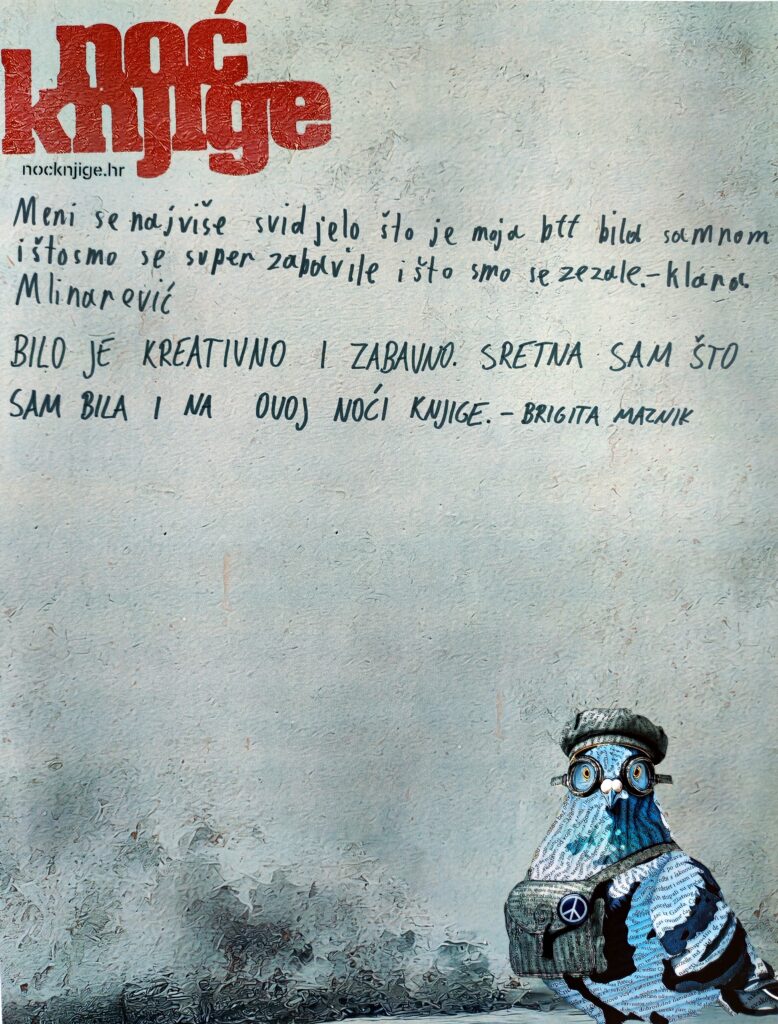 noć
knjige
nocknjige.hr
Meni se najviše svidjelo što je moja btt bila samnom
i štosmo se super zabavile i što smo se zezale.-klara
Mlinarević
BILO JE KREATIVNO I ZABAVNO. SRETNA SAM ŠTO
SAM BILA I NA OVOJ NOĆI KNJIGE. - BRIGITA MAZNIK